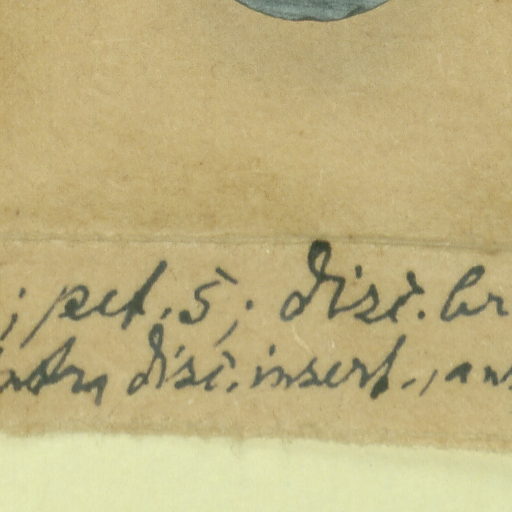 ; pet. 5; disc. br
disc. insert., an